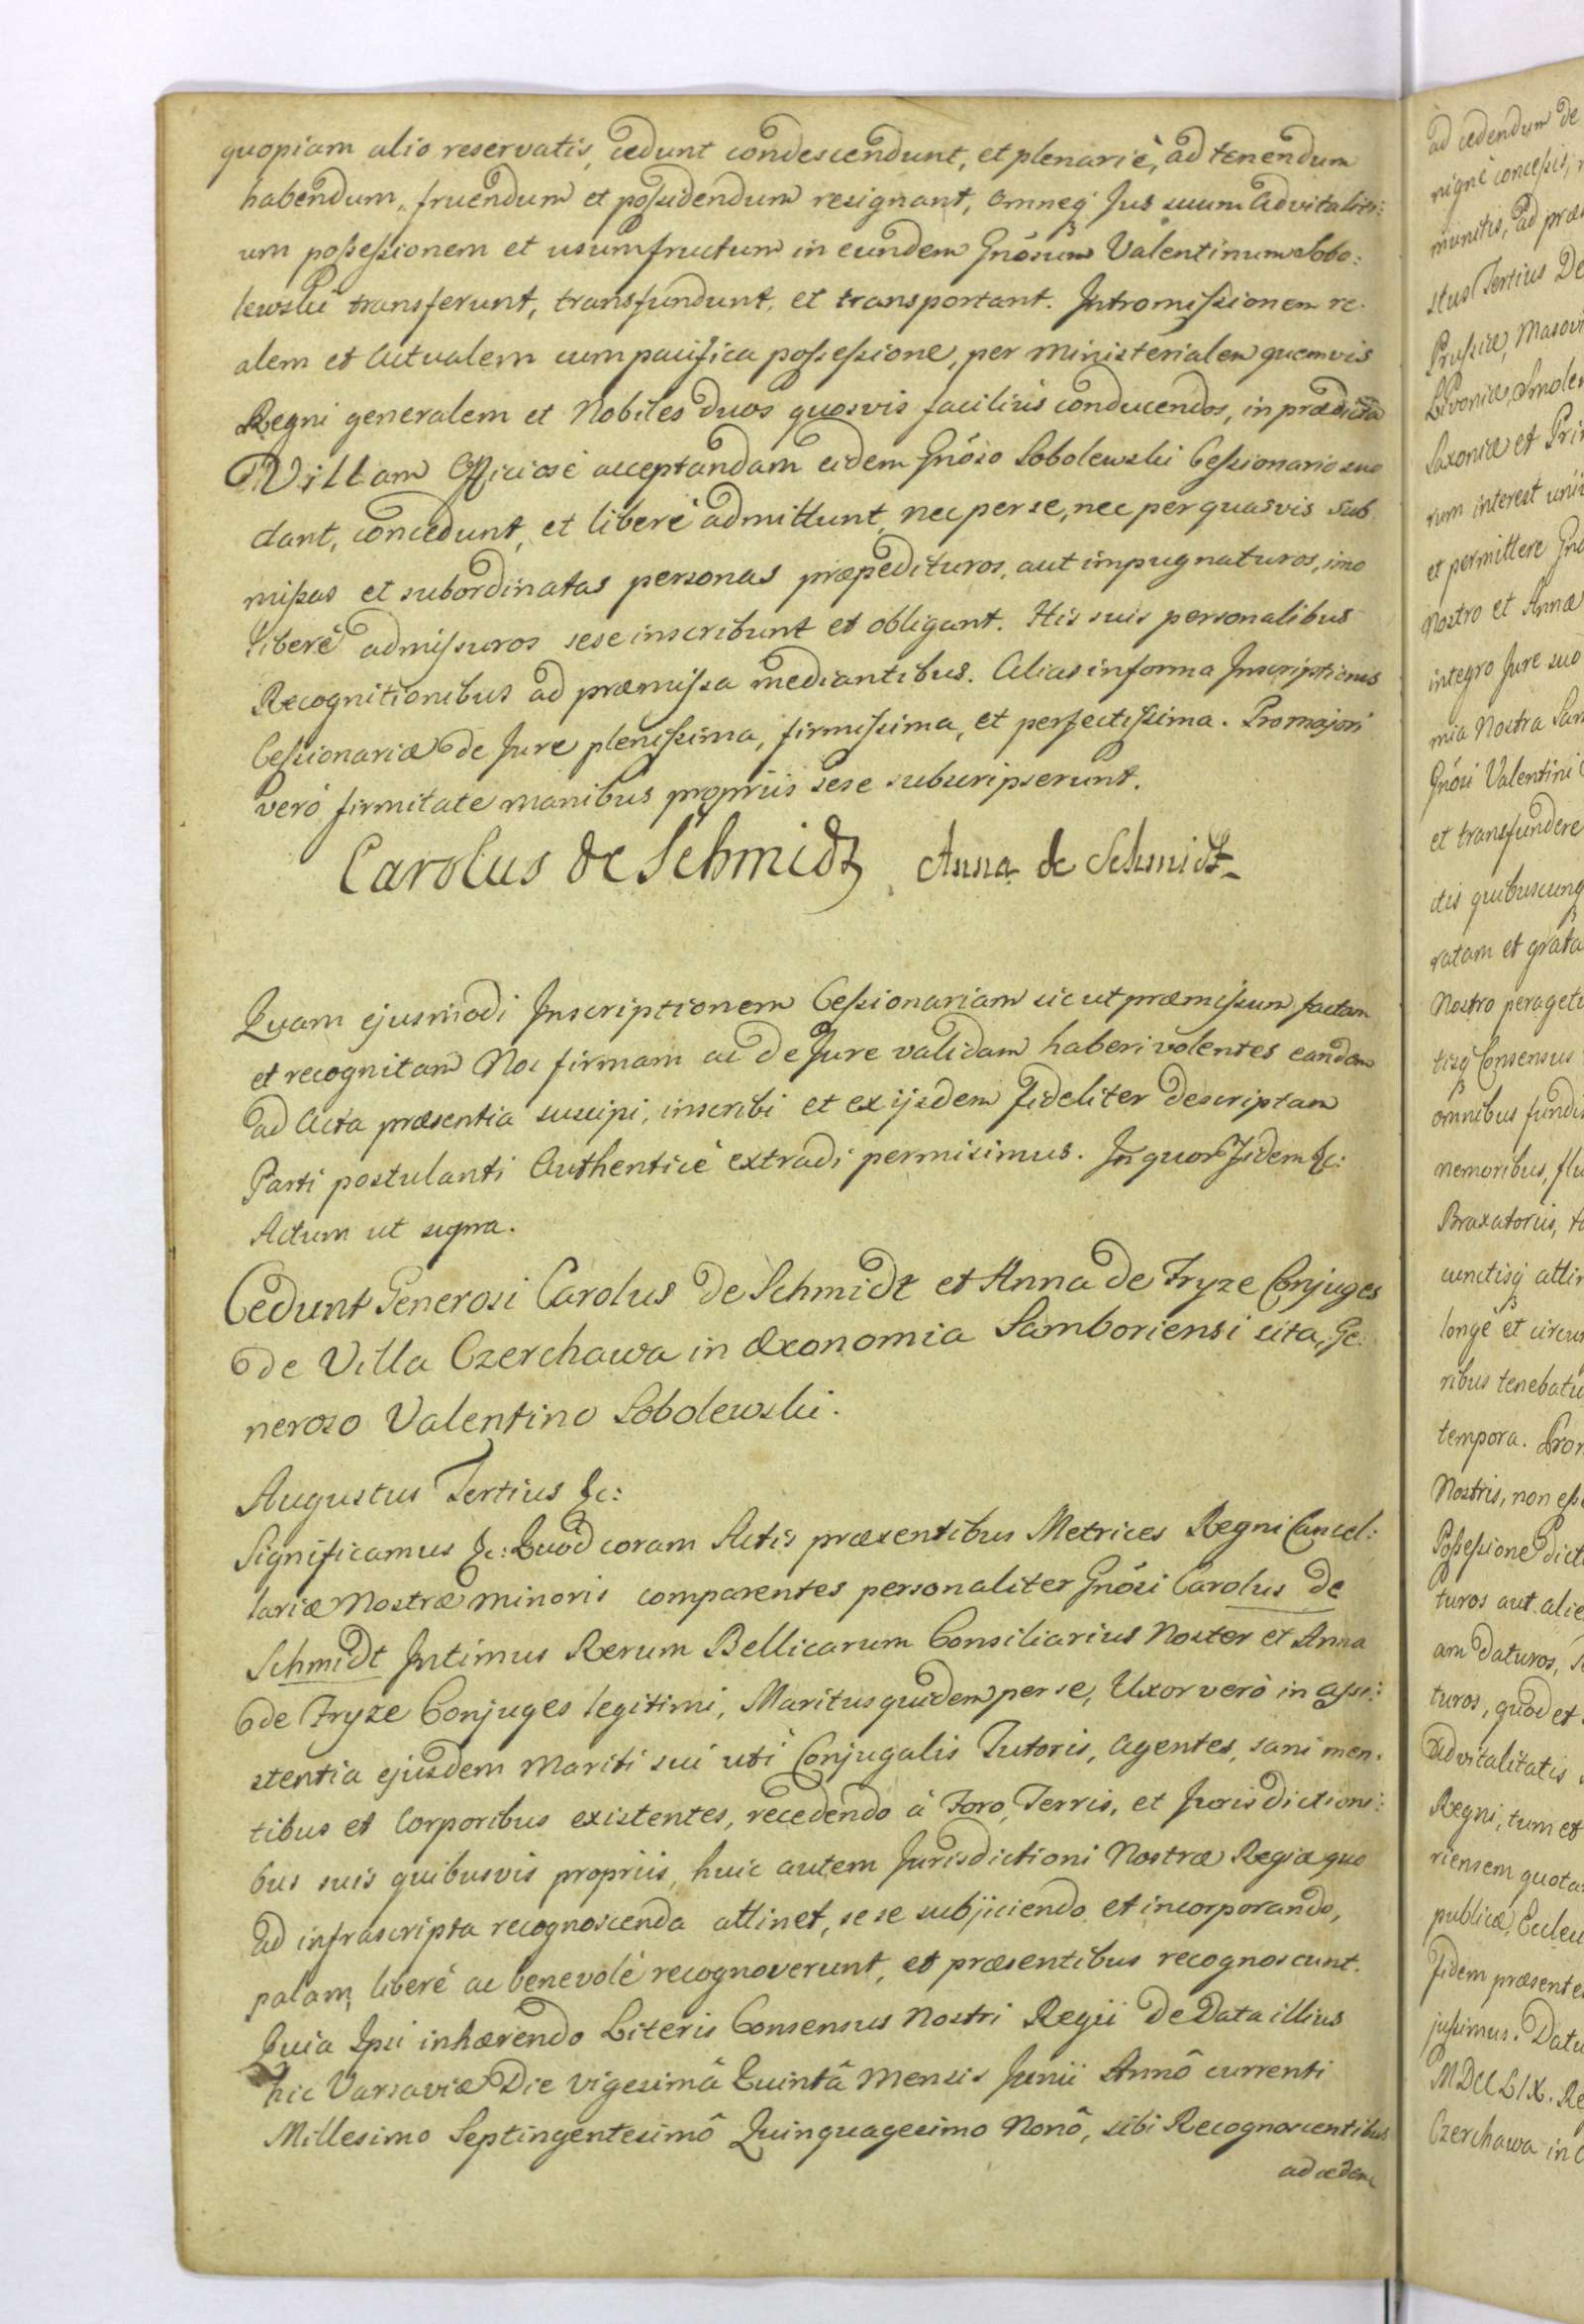 quopiam alio reservatis, cedunt condescendunt, et plenariè, ad tenendum
habendum, fruendum et possidendum resignant, omneq Jus suum advitaliti:
um possessionem et usumfructum in eundem Gnôsum Valentinum Sobo:
lewski transferunt, transfundunt, et transportant. Intromissionem re:
alem et Actualem cum pacifica possessione, per Ministerialem quemvis
Regni generalem et Nobiles duos quosvis faciliùs conducendos, in prædicta
Villam Officiosè acceptandam eidem Gnôso Sobolewski Cessionario suo
dant, concedunt, et liberè admittunt, nec per se, nec per quasvis sub
missas et subordinatas personas præpedituros, aut impugnaturos, imo
liberè admissuros sese inscribunt et obligant. His suis personalibus
Recognitionibus ad præmissa mediantibus. Alias in forma Inscriptionis
Cessionariæ de Jure plenissima, firmissima, et perfectissima. Pro majori
verò firmitate manibus propriis sese subscripserunt.
Carolus de Schmidt, Anna de Schmidt
Quam ejusmodi Inscriptionem Cessionariam sicut præmissum factam
et recognitam Nos firmam ac de Jure validam haberi volentes eandem
ad Acta præsentia suscipi, inscribi et ex ijsdem fideliter descriptam
Parti postulanti Authenticè extradi permisimus. In quor Fidem &c:
Actum ut supra.
Cedunt Generosi Carolus de Schmidt et Anna de Fryze Conjuges
de Villa Czerchawa in Œconomia Samboriensi sita, Ge:
neroso Valentino Sobolewski.
Augustus Tertius &c:
Significamus &c: Quod coram Actis præsentibus Metrices Regni Cancel:
lariæ Nostræ minoris comparentes personaliter Gnôsi Carolus de
Schmidt Intimus Rerum Bellicarum Consiliarius Noster et Anna
de Fryze Conjuges legitimi, Maritus quidem per se, Uxor verò in assi:
stentia ejusdem Mariti sui uti Conjugalis Tutoris, agentes, sani men:
tibus et Corporibus existentes, recedendo à Foro, Terris, et Jurisdictioni:
bus suis quibusvis propriis, huic autem Jurisdictioni Nostræ Regiæ quo
ad infrascripta recognoscenda attinet, sese subjiciendo et incorporando,
palam, liberè ac benevolè recognoverunt, et præsentibus recognoscunt.
Quia Ipsi inhærendo Literis Consensus Nostri Regii de Data illius
hic Varsaviæ Die Vigesimâ Quintâ Mensis Junii Annô currenti
Millesimo Septingentesimô Quinquagesimo Nonô, sibi Recognoscentibus
ad cedend
ad cedendum de
nignè concessis,
munitis, ad præ
stus Tertius De
Prussiæ, Masovi
Livoniæ, Smolen
Saxoniæ et Prin
rum interest univ
et permittere Gno
Nostro et Annæ
integro Jure suo
mia Nostra Sam
Gnôsi Valentini
et transfundere
itis quibuscunq
ratam et grata
Nostro peragetu
tisq Consensus
omnibus fundi
nemoribus, flu
Braxatoriis, ta
cunctisq attin
longè et circum
ribus tenebatu
tempora. Pro
Nostris, non esse
Possessione dict
turos aut alie
am daturos, S
turos, quod et
Advitalitatis
Regni, tum et
riensem quota
publicæ, Eccles
Fidem præsente
jussimus. Datu
MDCCLIX. Re
Czerchawa in